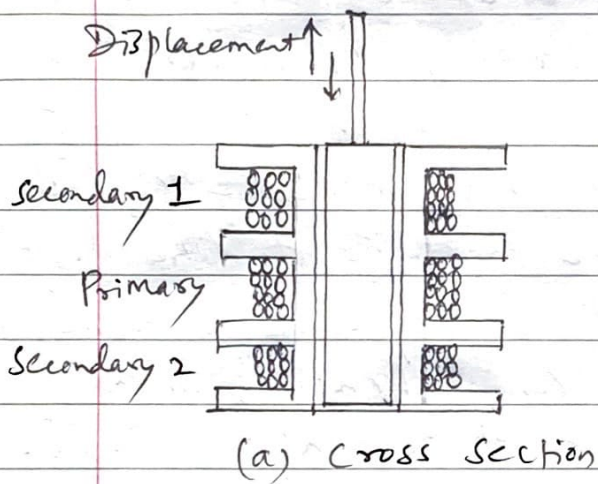 Displacement
Secondary 1
Primary
Secondary 2
(a) Cross section